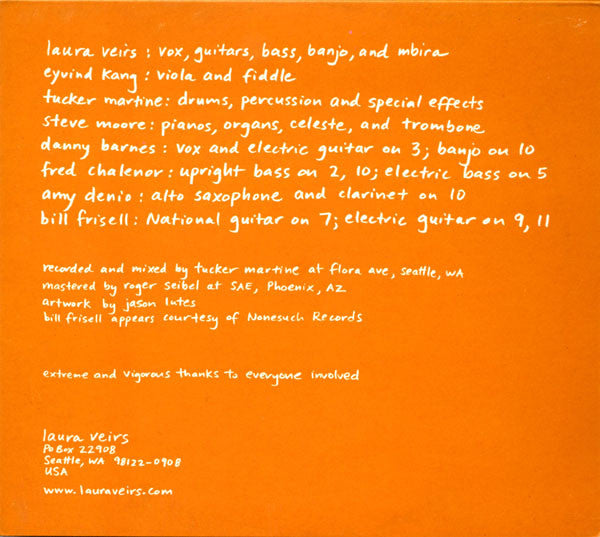 laura veirs : vox, guitars, bass, banjo, and mbira
eyvind kang : viola and fiddle
tucker martine : drums, percussion and special effects
steve moore : pianos, organs, celeste, and trombone
danny barnes : vox and electric guitar on 3; banjo on 10
fred chalenor : upright bass on 2, 10; electric bass on 5
amy denio : alto saxophone and clarinet on 10
bill frisell : National guitar on 7; electric guitar on 9, 11
recorded and mixed by tucker martine at flora ave, seattle, WA
mastered by roger seibel at SAE, Phoenix, AZ
artwork by jason lutes
bill frisell appears courtesy of Nonesuch Records
extreme and vigorous thanks to everyone involved
laura veirs
PO Box 22908
Seattle, WA 98122-0908
USA
www.lauraveirs.com